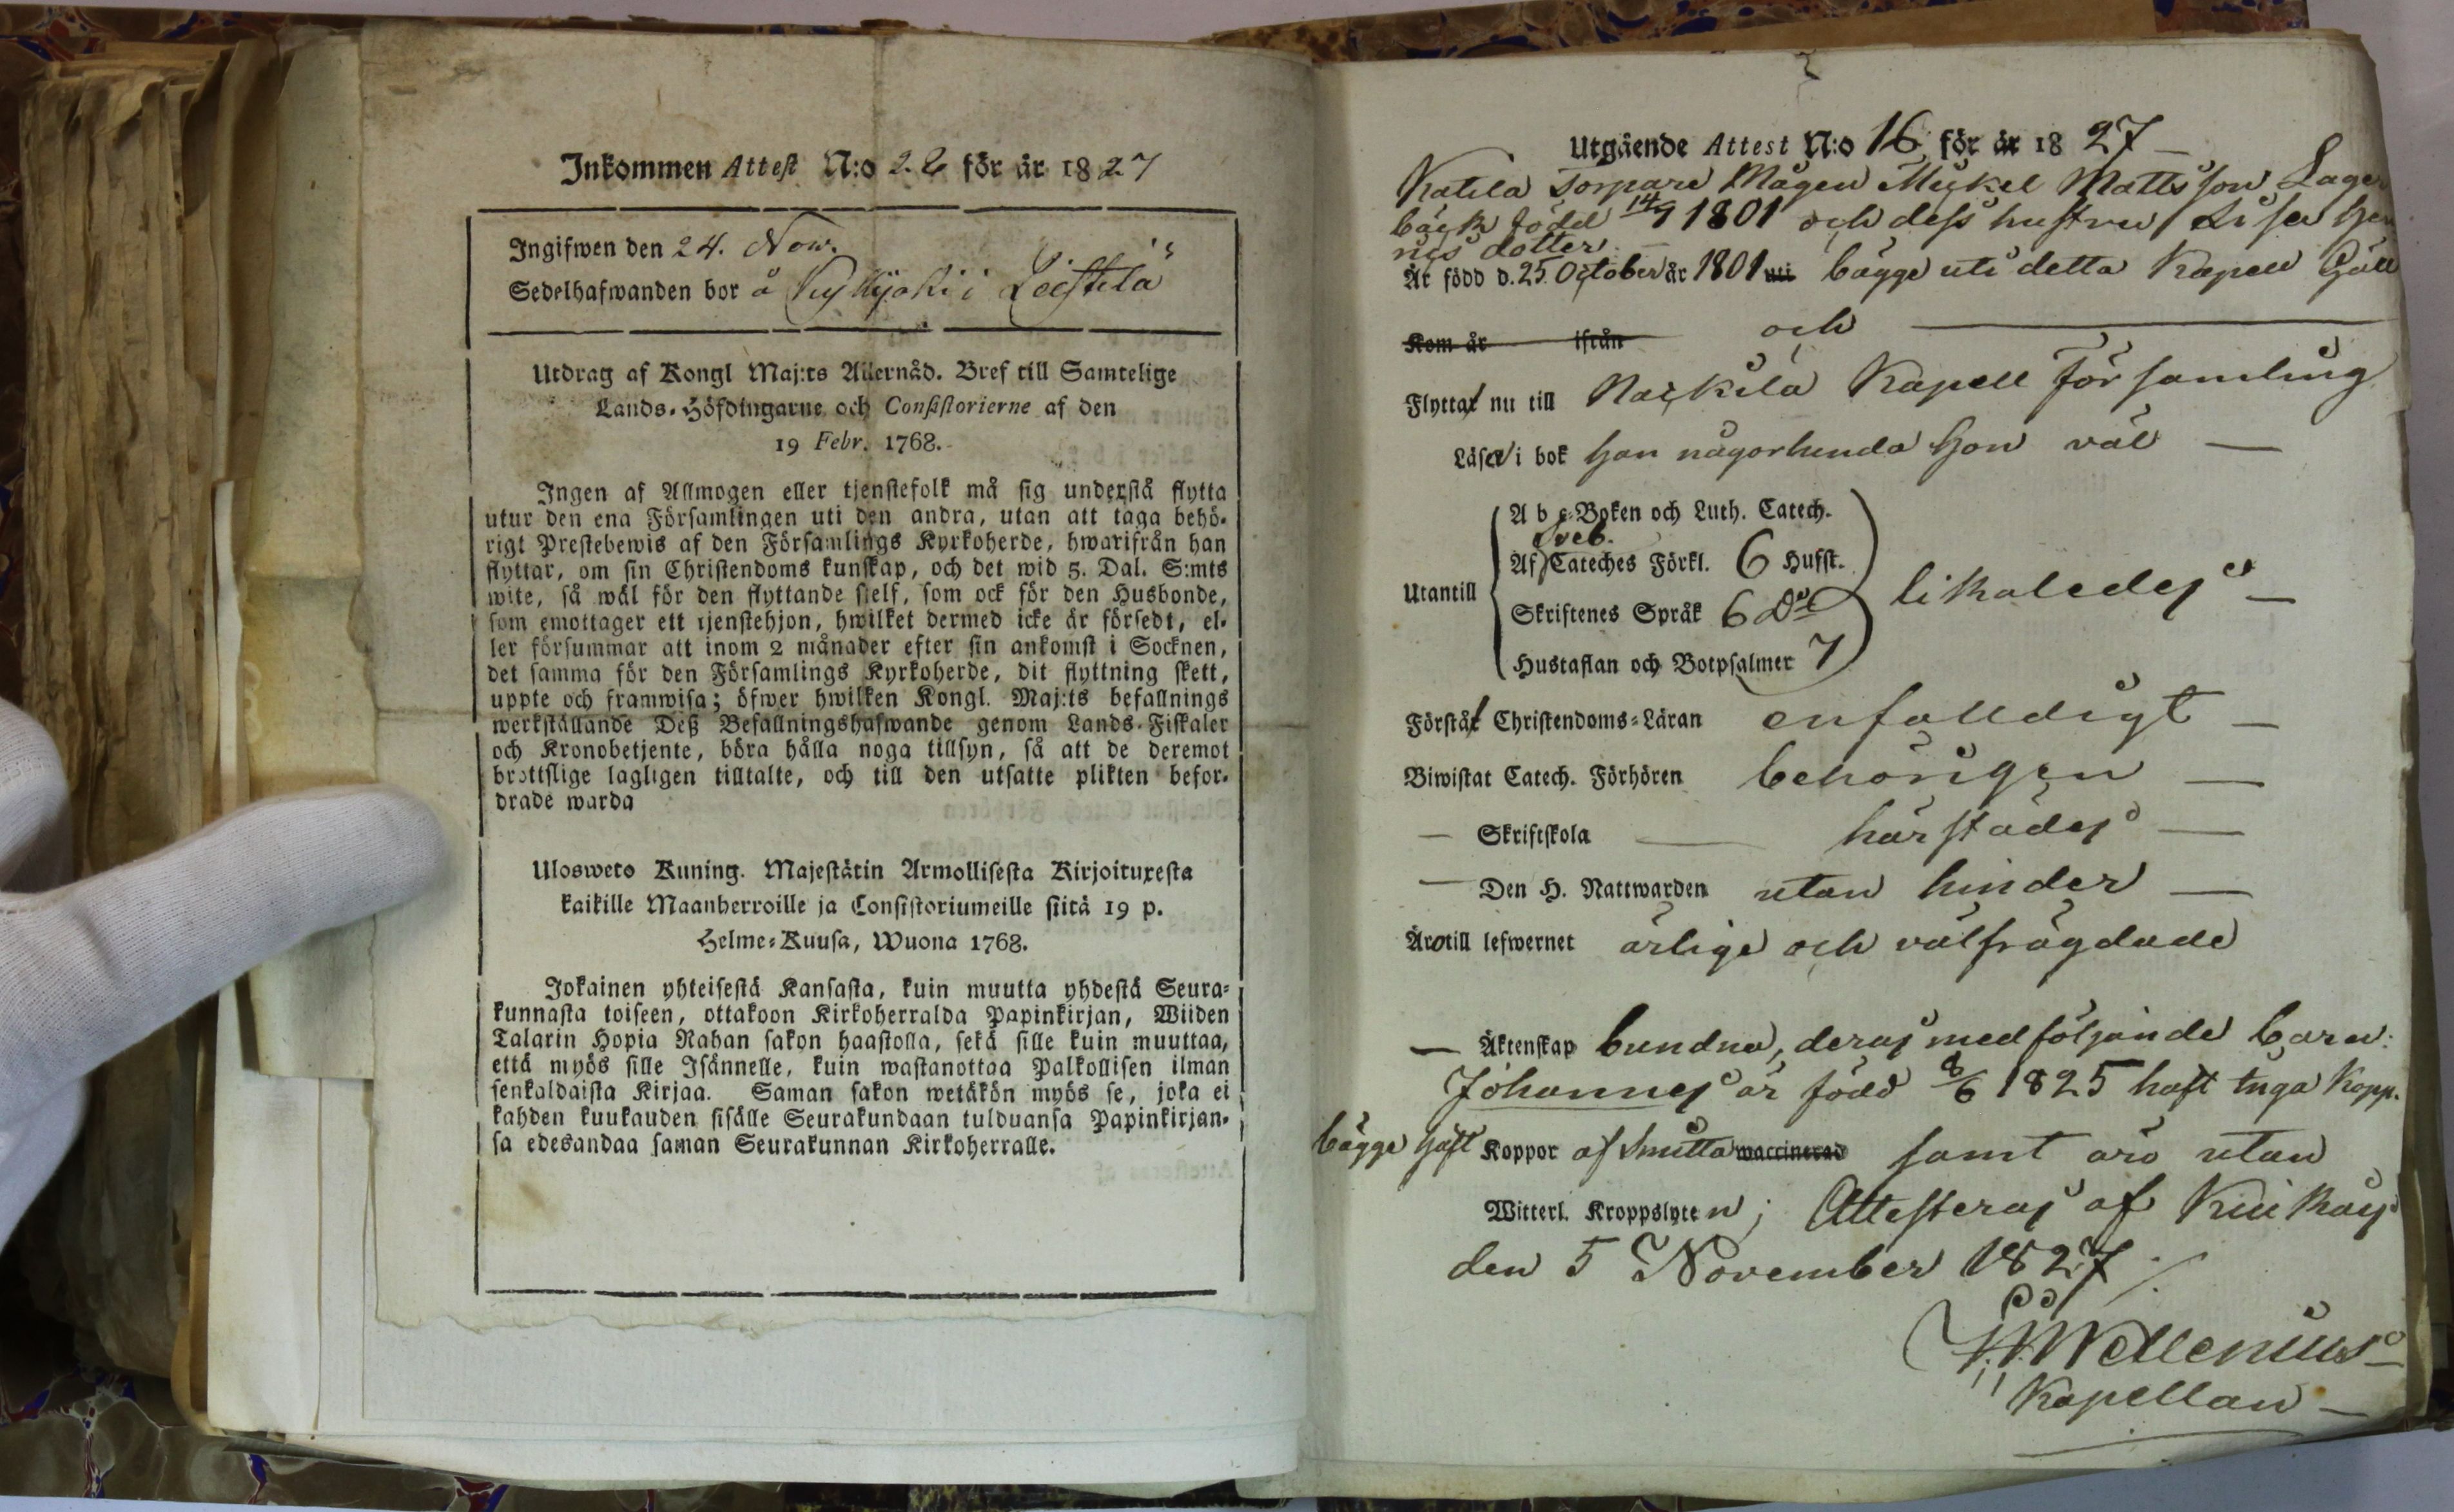 Inkommen Attest N:o 26 för år 1827
Ingifwen den 24. Nov.
Sedelhafwanden bor å Kyläjoki i Leistilä
Utdrag af Kongl Maj:ts Allernåd. Bref till Samtelige
Lands-Höfdingarne och Consistorierne af den
19 Febr. 1768.
Ingen af Allmogen eller tjenstefolk må sig understå flytta
utur den ena Församlingen uti den andra, utan att taga behö-
rigt Prestebewis af den Församlings Kyrkoherde, hwarifrån han
flyttar, om sin Christendoms kunskap, och det wid 5. Dal. S:mts
wite, så wäl för den flyttande sjelf, som ock för den Husbonde,
som emottager ett tjenstehjon, hwilket dermed icke är försedt, el-
ler försummar att inom 2 månader efter sin ankomst i Socknen,
det samma för den Församlings Kyrkoherde, dit flyttning skett,
uppte och framwisa; öfwer hwilken Kongl. Maj:ts befallnings
werkställande Deß Befallningshafwande genom Lands-Fiskaler
och Kronobetjente, böra hålla noga tillsyn, så att de deremot
brottslige lagligen tilltalte, och till den utsatte plikten befor-
drade warda
Ulosweto Kuning. Majestätin Armollisesta Kirjoituxesta
kaikille Maanherroille ja Consistoriumeille siitä 19 p.
Helme-Kuusa, Wuona 1768.
Jokainen yhteisestä Kansasta, kuin muutta yhdestä Seura-
kunnasta toiseen, ottakoon Kirkoherralda Papinkirjan, Wiiden
Talarin Hopia Rahan sakon haastolla, sekä sille kuin muuttaa,
että myös sille Isännelle, kuin wastanottaa Palkollisen ilman
senkaldaista Kirjaa. Saman sakon wetäkön myös se, joka ei
kahden kuukauden sisälle Seurakundaan tulduansa Papinkirjan-
sa edesandaa saman Seurakunnan Kirkoherralle.
Utgående Attest N:o 16 för år 1827
Katila Torpare Mågen Mickel Mattsson Lager
bäck född 14/9 1801 och dess hustru Lisa Hen
rics dotter
Är född d. 25 October år 1801 uti bägge uti detta Kapell
Kom år ifrån och
Flyttar nu till Nackila Kapell Församling
Läser i bok Han någorlunda Hon väl
Utantill
A b c-Boken och Luth. Catech.
Sveb.
Af Cateches Förkl. 6 Hufst.
Skriftenes Språk 6 D:o
Hustaflan och Botpsalmer 7
likaledes
Förstår Christendoms-Läran enfalldigt
Biwistat Catech. Förhören behörigen
Skriftskola härstädes
Den H. Nattwarden utan hinder
Äro till lefwernet ärlige och välfrägdade
Äktenskap bundne, deras medföljande barn:
Johannes är född 8/6 1825 haft inga Kopp.
bägge haft Koppor af Smitta waccinerad samt äro utan
Witterl. Kroppslyten; Attesteras af Kiukais
den 5 November 1827
Wellenius
Kapellan